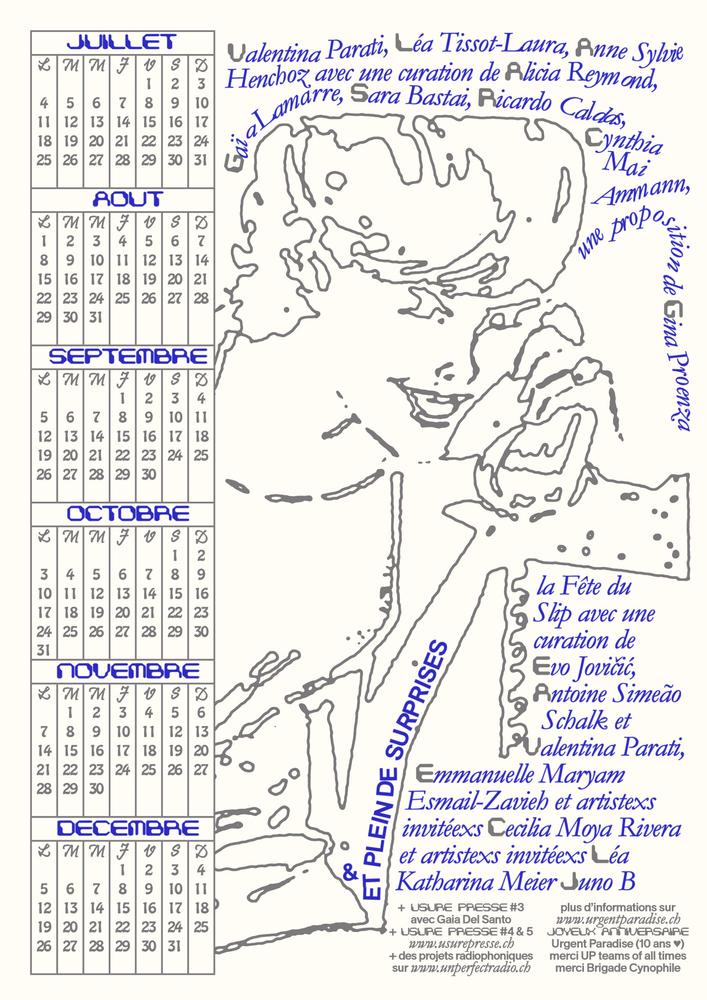 JUILLET
L M M J V S D
1 2 3
4 5 6 7 8 9 10
11 12 13 14 15 16 17
18 19 20 21 22 23 24
25 26 27 28 29 30 31
AOUT
L M M J V S D
1 2 3 4 5 6 7
8 9 10 11 12 13 14
15 16 17 18 19 20 21
22 23 24 25 26 27 28
29 30 31
SEPTEMBRE
L M M J V S D
1 2 3 4
5 6 7 8 9 10 11
12 13 14 15 16 17 18
19 20 21 22 23 24 25
26 27 28 29 30
OCTOBRE
L M M J V S D
1 2
3 4 5 6 7 8 9
10 11 12 13 14 15 16
17 18 19 20 21 22 23
24 25 26 27 28 29 30
31
NOVEMBRE
L M M J V S D
1 2 3 4 5 6
7 8 9 10 11 12 13
14 15 16 17 18 19 20
21 22 23 24 25 26 27
28 29 30
DECEMBRE
L M M J V S D
1 2 3 4
5 6 7 8 9 10 11
12 13 14 15 16 17 18
19 20 21 22 23 24 25
26 27 28 29 30 31
Valentina Parati, Léa Tissot-Laura, Anne Sylvie
Henchoz avec une curation de Alicia Reymond,
Gaïa Lamarre, Sara Bastai, Ricardo Caldas,
Cynthia
Mai
Ammann,
une proposition de Gina Proenza
la Fête du
Slip avec une
curation de
Evo Jovičić,
Antoine Simeão
Schalk et
Valentina Parati,
Emmanuelle Maryam
Esmail-Zavieh et artistexs
invitéexs Cecilia Moya Rivera
et artistexs invitéexs Léa
Katharina Meier Juno B
& ET PLEIN DE SURPRISES
+ USURE PRESSE #3
avec Gaia Del Santo
+ USURE PRESSE #4 & 5
www.usurepresse.ch
+ des projets radiophoniques
sur www.unperfectradio.ch
plus d'informations sur
www.urgentparadise.ch
JOYEUX ANNIVERSAIRE
Urgent Paradise (10 ans ♥)
merci UP teams of all times
merci Brigade Cynophile